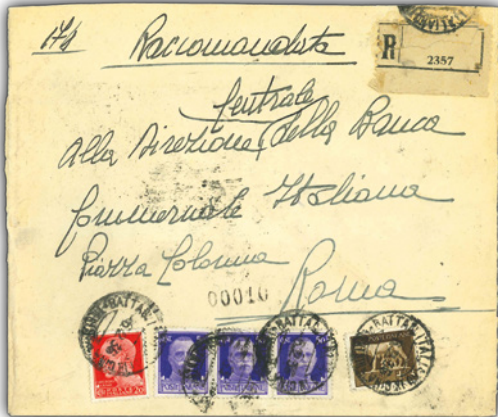 Raccomandata
R 2357
Centrale
Alla Direzione della Banca
Commerciale Italiana
Piazza Colonna
00010
Roma